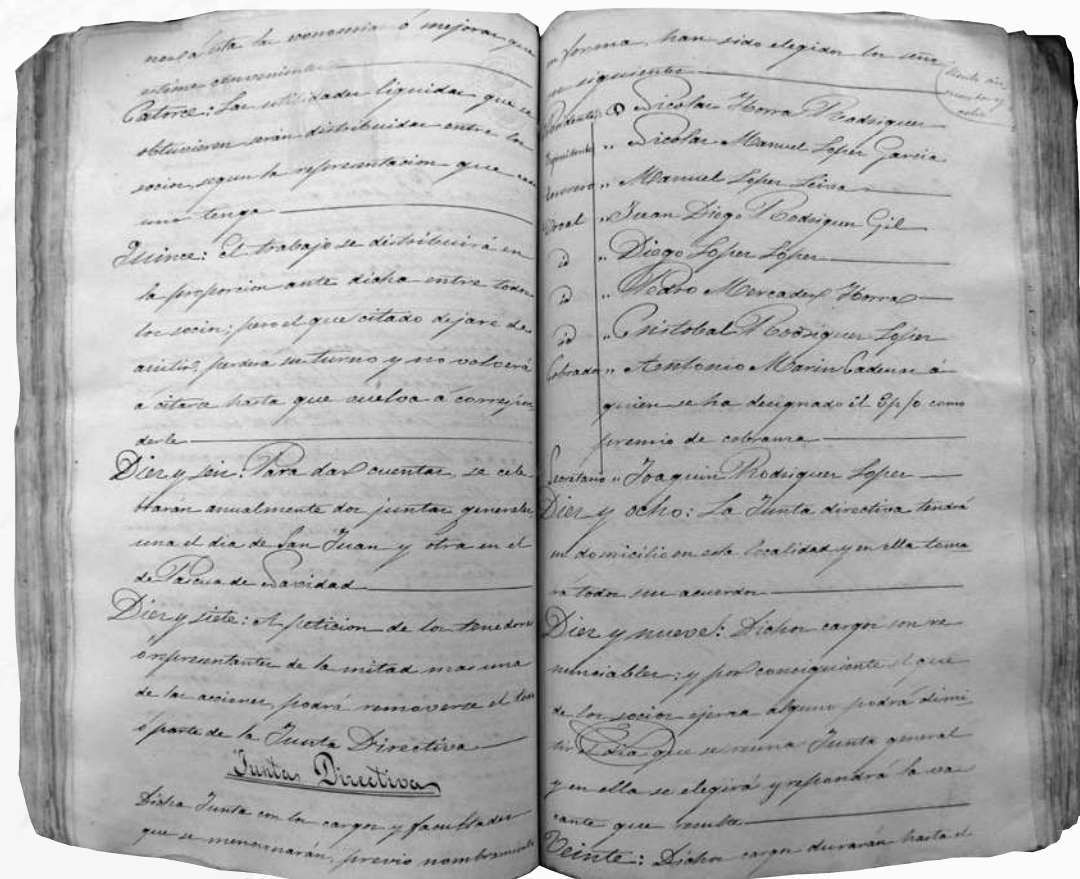 nos a ésta la economia ó mejoras que
estime convenientes
Catorce: Las utilidades liquidas que se
obtuvieren serán distribuidas entre los
socios, segun la representacion que cada
uno tenga
Quince: El trabajo se distribuirá en
la proporcion ante dicha entre todos
los socios; pero el que citado dejare de
asistir, perderá su turno y no volverá
á citarse hasta que vuelva á correspon
derle
Diez y seis: Para dar cuentas, se cele-
brarán anualmente dos juntas generales,
una el dia de San Juan y otra en el
de Pascua de Navidad
Diez y siete: A peticion de los tenedores
ó representantes de la mitad mas una
de las acciones, podrá removerse el todo
ó parte de la Junta Directiva
Junta Directiva
Dicha Junta con los cargos y facultades
que se mencionarán, previo nombramiento
en forma, han sido elegidos los seño
res siguientes
Presidente D Nicolas Yborra Rodriguez
" Nicolas Manuel Lopez Garcia
Tesorero " Manuel Lopez Leiva
Vocal " Juan Diego Rodriguez Gil
id " Diego Lopez López
id " Pedro Mercader Yborra
id " Cristobal Rodriguez Lopez
Cobrador " Antonio Marin Cadenas á
quien se ha designado el 6 p/o como
premio de cobranza
Secretario " Joaquin Rodriguez Lopez
Diez y ocho: La Junta directiva tendrá
su domicilio en esta localidad y en ella toma
rá todos sus acuerdos
Diez y nueve: Dichos cargos son re
nunciables; y por consiguiente el que
de los socios ejerza alguno podrá dimi
tir el dia que se reuna Junta general
y en ella se elegirá y repondrá la va
cante que resulte
Veinte: Dichos cargos durarán hasta el